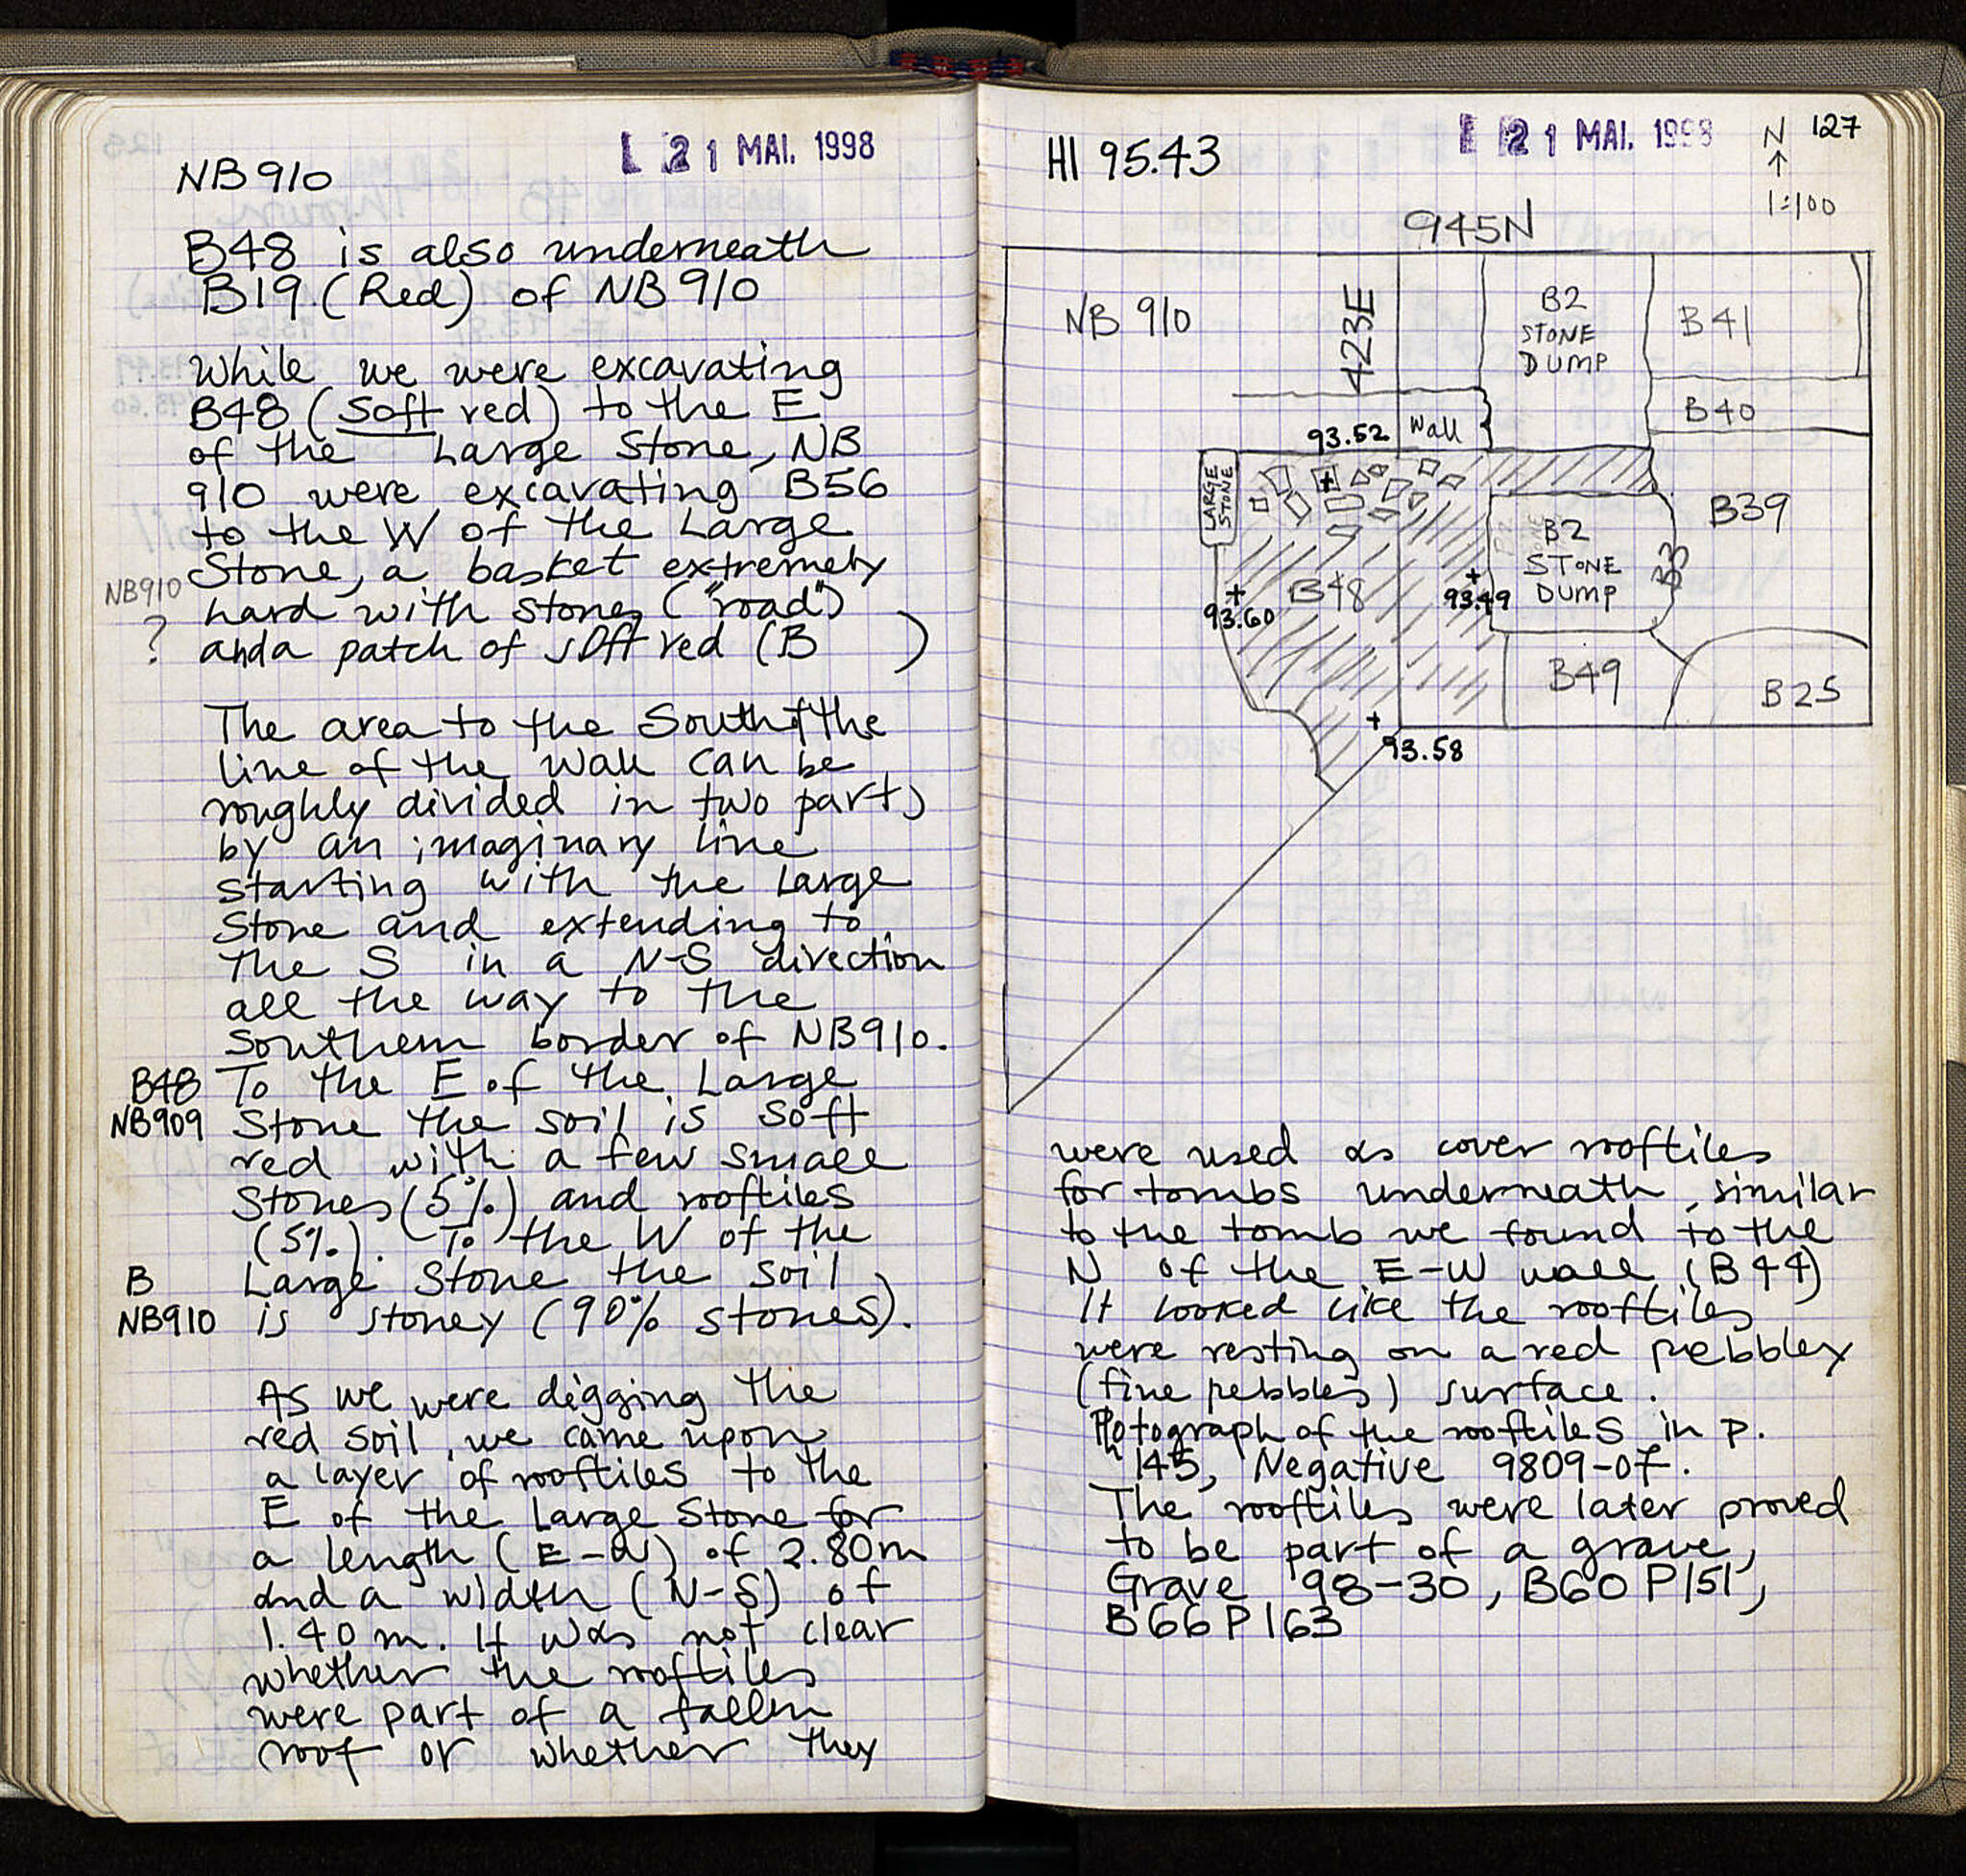 L 21 MAI. 1998
NB 910
B48 is also underneath
B19 (Red) of NB 910
While we were excavating
B48 (soft red) to the E
of the Large Stone, NB
910 were excavating B56
to the W of the Large
Stone, a basket extremely
NB910 hard with stones ("road")
? and a patch of soft red (B )
The area to the South of the
line of the wall can be
roughly divided in two parts
by an imaginary line
starting with the Large
Stone and extending to
the S in a N-S direction
all the way to the
Southern border of NB910.
B48 To the E of the Large
NB909 Stone the soil is soft
red with a few small
Stones (5%) and rooftiles
(5%). To the W of the
B Large Stone the soil
NB910 is stoney (90% stones).
As we were digging the
red soil, we came upon
a layer of rooftiles to the
E of the Large Stone for
a length (E-W) of 2.80m
and a width (N-S) of
1.40 m. It was not clear
whether the rooftiles
were part of a fallen
roof or whether they
21 MAI. 1998
127
HI 95.43
N
1:100
945N
NB 910
423E
B2
STONE
DUMP
B41
B40
93.52
Wall
LARGE
STONE
B39
B2
STONE
DUMP
B3
B48
93.49
93.60
B49
B25
93.58
were used as cover rooftiles
for tombs underneath, similar
to the tomb we found to the
N of the E-W wall (B44)
It looked like the rooftiles
were resting on a red pebbley
(fine pebbles) surface.
Photograph of the rooftiles in p.
145, Negative 9809-07.
The rooftiles were later proved
to be part of a grave,
Grave 98-30, B60 P151,
B66 P163